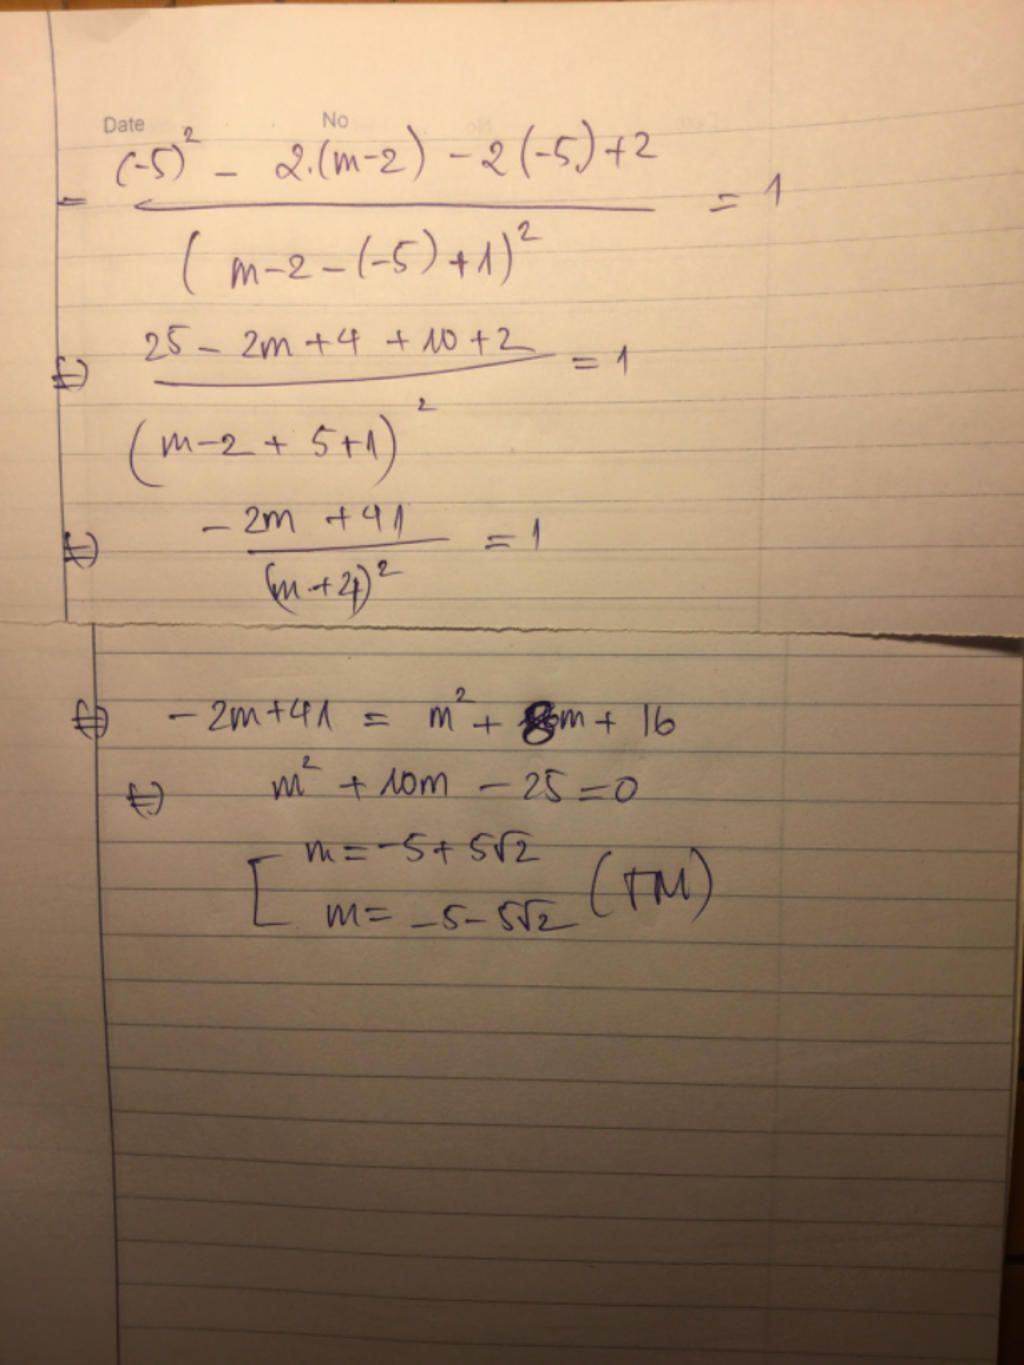 Date No
= (-5)² - 2.(m-2) - 2(-5)+2 / (m-2-(-5)+1)² = 1
⇔ 25 - 2m + 4 + 10 + 2 / (m-2 + 5+1)² = 1
⇔ -2m + 41 / (m+4)² = 1
⇔ -2m+41 = m² + 8m + 16
⇔ m² + 10m - 25 = 0
[ m = -5 + 5√2
m = -5 - 5√2 (TM)